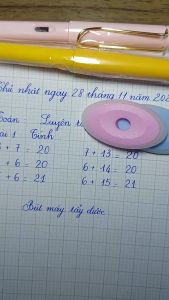 nhật ngày 28 tháng 11 năm
Luyện
1 Tính
+ 7 = 20 7 + 13 = 20
+ 6 = 20 6 + 14 = 20
+ 6 = 21 6 + 15 = 21
Bút máy tẩy được